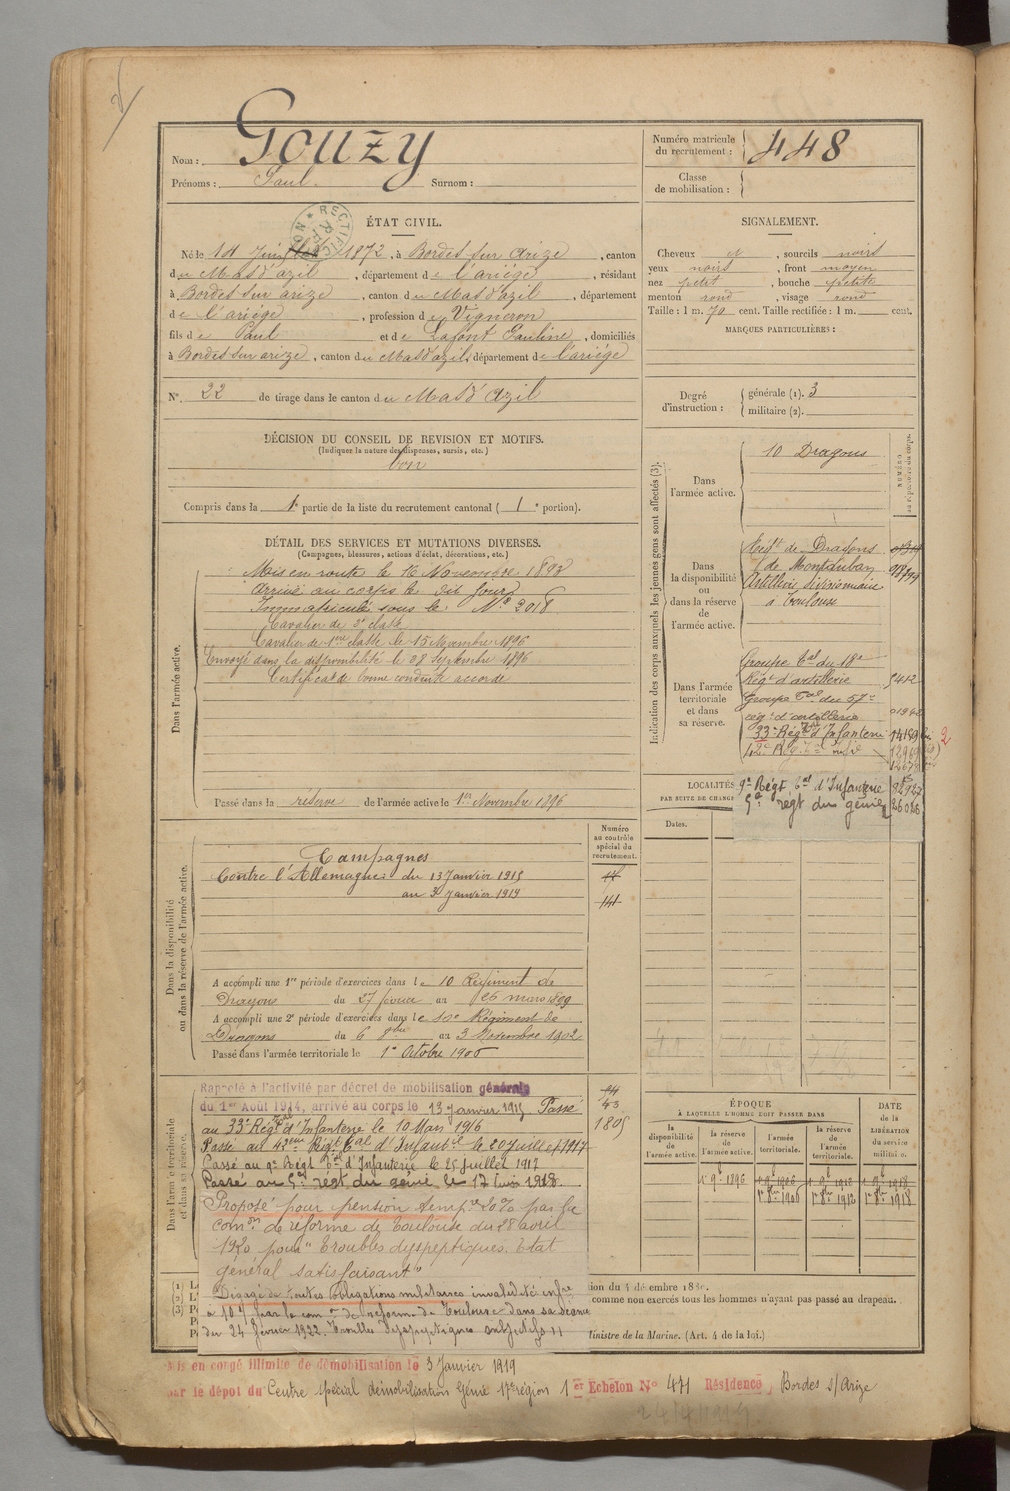 Nom : Gouzy
Prénoms : Paul Surnom :
Numéro matricule du recrutement : 448
Classe de mobilisation :
RECTIFICATION
ÉTAT CIVIL.
Né le 14 Juin 1872, à Bordes sur arize, canton
du Mas d'azil, département de l'ariège, résidant
à Bordes sur arize, canton du Mas d'azil, département
de l'ariège, profession de Vigneron
fils de Paul et de Lafont Pauline, domiciliés
à Bordes sur arize, canton du Mas d'azil, département de l'ariège
N° 22 de tirage dans le canton du Mas d'Azil
SIGNALEMENT.
Cheveux et, sourcils noirs
yeux noirs, front moyen
nez petit, bouche petite
menton rond, visage rond
Taille : 1 m. 70 cent. Taille rectifiée : 1 m. cent.
MARQUES PARTICULIÈRES :
Degré d'instruction : générale (1). 3
militaire (2).
DÉCISION DU CONSEIL DE REVISION ET MOTIFS.
(Indiquer la nature des dispenses, sursis, etc.)
bon
Compris dans la 1e partie de la liste du recrutement cantonal ( 1e portion).
DÉTAIL DES SERVICES ET MUTATIONS DIVERSES.
(Campagnes, blessures, actions d'éclat, décorations, etc.)
Dans l'armée active.
Mis en route le 16 Novembre 1893
Arrivé au corps le dit jour
Immatriculé sous le N° 2018
Cavalier de 2e classe
Cavalier de 1ère classe le 15 Novembre 1896
Envoyé dans la disponibilité le 28 Septembre 1896
Certificat de bonne conduite accordé
Passé dans la réserve de l'armée active le 1er Novembre 1896
Indication des corps auxquels les jeunes gens sont affectés (3).
NUMÉRO au répertoire du corps.
Dans l'armée active.
10 Dragons
Dans la disponibilité ou dans la réserve de l'armée active.
Régt de Dragons
de Montauban
Artillerie divisionnaire
à Toulouse
Dans l'armée territoriale et dans sa réserve.
Groupe tal du 18e
Régt d'artillerie 2412
Groupe tal du 57e
rég. d'artillerie
33e Régt Tal d'Infanterie 14189
9e Régt tal d'Infanterie
5e régt du génie 26026
LOCALITÉS
PAR SUITE DE CHANG
Dates.
Dans la disponibilité ou dans la réserve de l'armée active.
Numéro au contrôle spécial du recrutement.
Campagnes
Contre l'Allemagne : du 13 Janvier 1915
au 3 Janvier 1919
141
A accompli une 1re période d'exercices dans le 10 Régiment de
Dragons du 27 février au 26 mars 1899
A accompli une 2e période d'exercices dans le 10e Régiment de
Dragons du 6 8bre au 3 Novembre 1902
Passé dans l'armée territoriale le 1er Octobre 1906
Dans l'armée territoriale et dans sa réserve.
Rappelé à l'activité par décret de mobilisation générale
du 1er Août 1914, arrivé au corps le 13 janvier 1915 Passé
au 33e Régt Tal d'Infanterie le 10 Mars 1916
Passé au 42eme Régt Tal d'Infanterie le 20 juillet 1917
Passé au 9e Régt tal d'Infanterie le 25 juillet 1917
Passé au 5e régt du génie le 17 1918.
Proposé pour pension temp re 20% par la
com on de réforme de Toulouse du 28 avril
1920 pour " Troubles dyspeptiques. Etat
général satisfaisant"
Dégagé de toutes obligations militaires invalidité infre
à 10 % par la com on de réforme de Toulouse dans sa séance
du 24 février 1922. Troubles dyspeptiques subjectifs
43
1805
ÉPOQUE
À LAQUELLE L'HOMME DOIT PASSER DANS
la disponibilité de l'armée active.
la réserve de l'armée active.
l'armée territoriale.
la réserve de l'armée territoriale.
DATE de la LIBÉRATION du service militaire.
1er 9bre 1896 1er 9bre 1906 1er 9bre 1912 1er 9bre 1918
1er 8bre 1906 1er 8bre 1912 1er 8bre 1918
comme non exercés tous les hommes n'ayant pas passé au drapeau.
Ministre de la Marine. (Art. 4 de la loi.)
Mis en congé illimité de démobilisation le 3 Janvier 1919
par le dépôt du Centre spécial démobilisation Génie 17e région 1er Echelon N° 471 Résidence Bordes s/ Arize